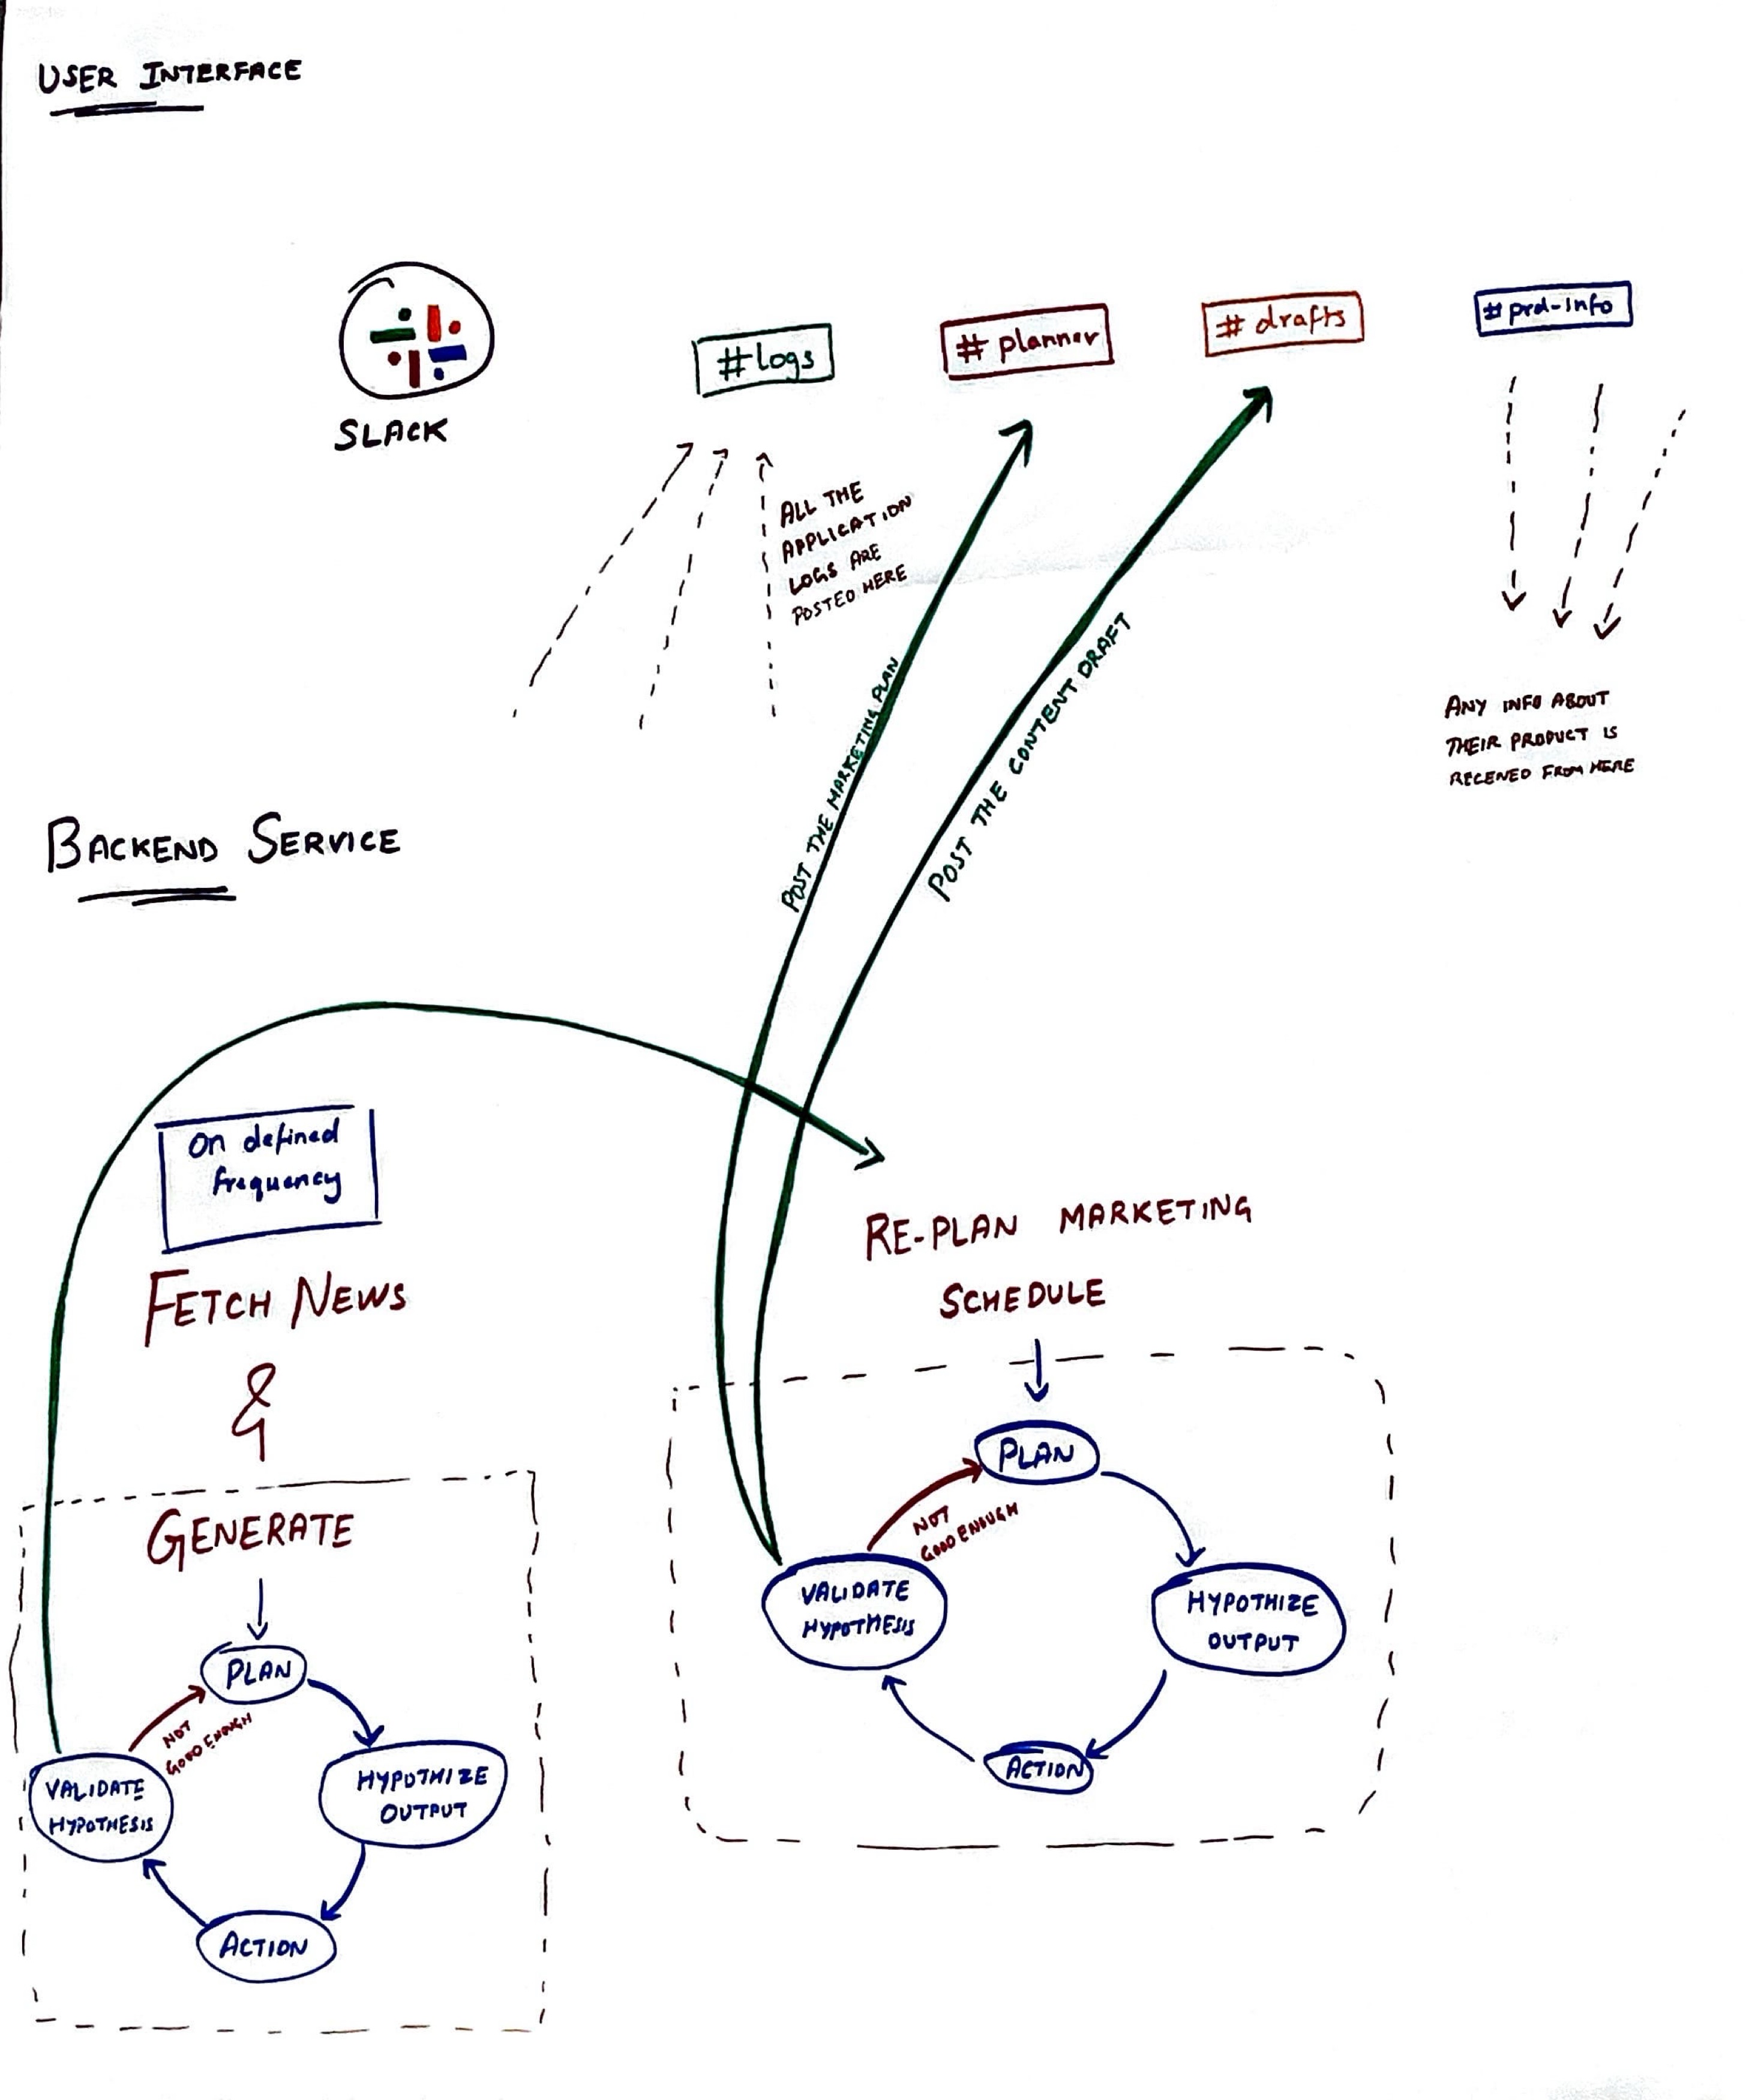 USER INTERFACE
SLACK
#logs
# planner
# drafts
#prd-info
ALL THE
APPLICATION
LOGS ARE
POSTED HERE
POST THE MARKETING PLAN
POST THE CONTENT DRAFT
ANY INFO ABOUT
THEIR PRODUCT IS
RECEVED FROM HERE
BACKEND SERVICE
On defined
frequency
FETCH NEWS
&
GENERATE
PLAN
NOT
GOOD ENOUGH
VALIDATE
HYPOTHESIS
HYPOTHIZE
OUTPUT
ACTION
RE-PLAN MARKETING
SCHEDULE
PLAN
NOT
GOOD ENOUGH
VALIDATE
HYPOTHESIS
HYPOTHIZE
OUTPUT
ACTION